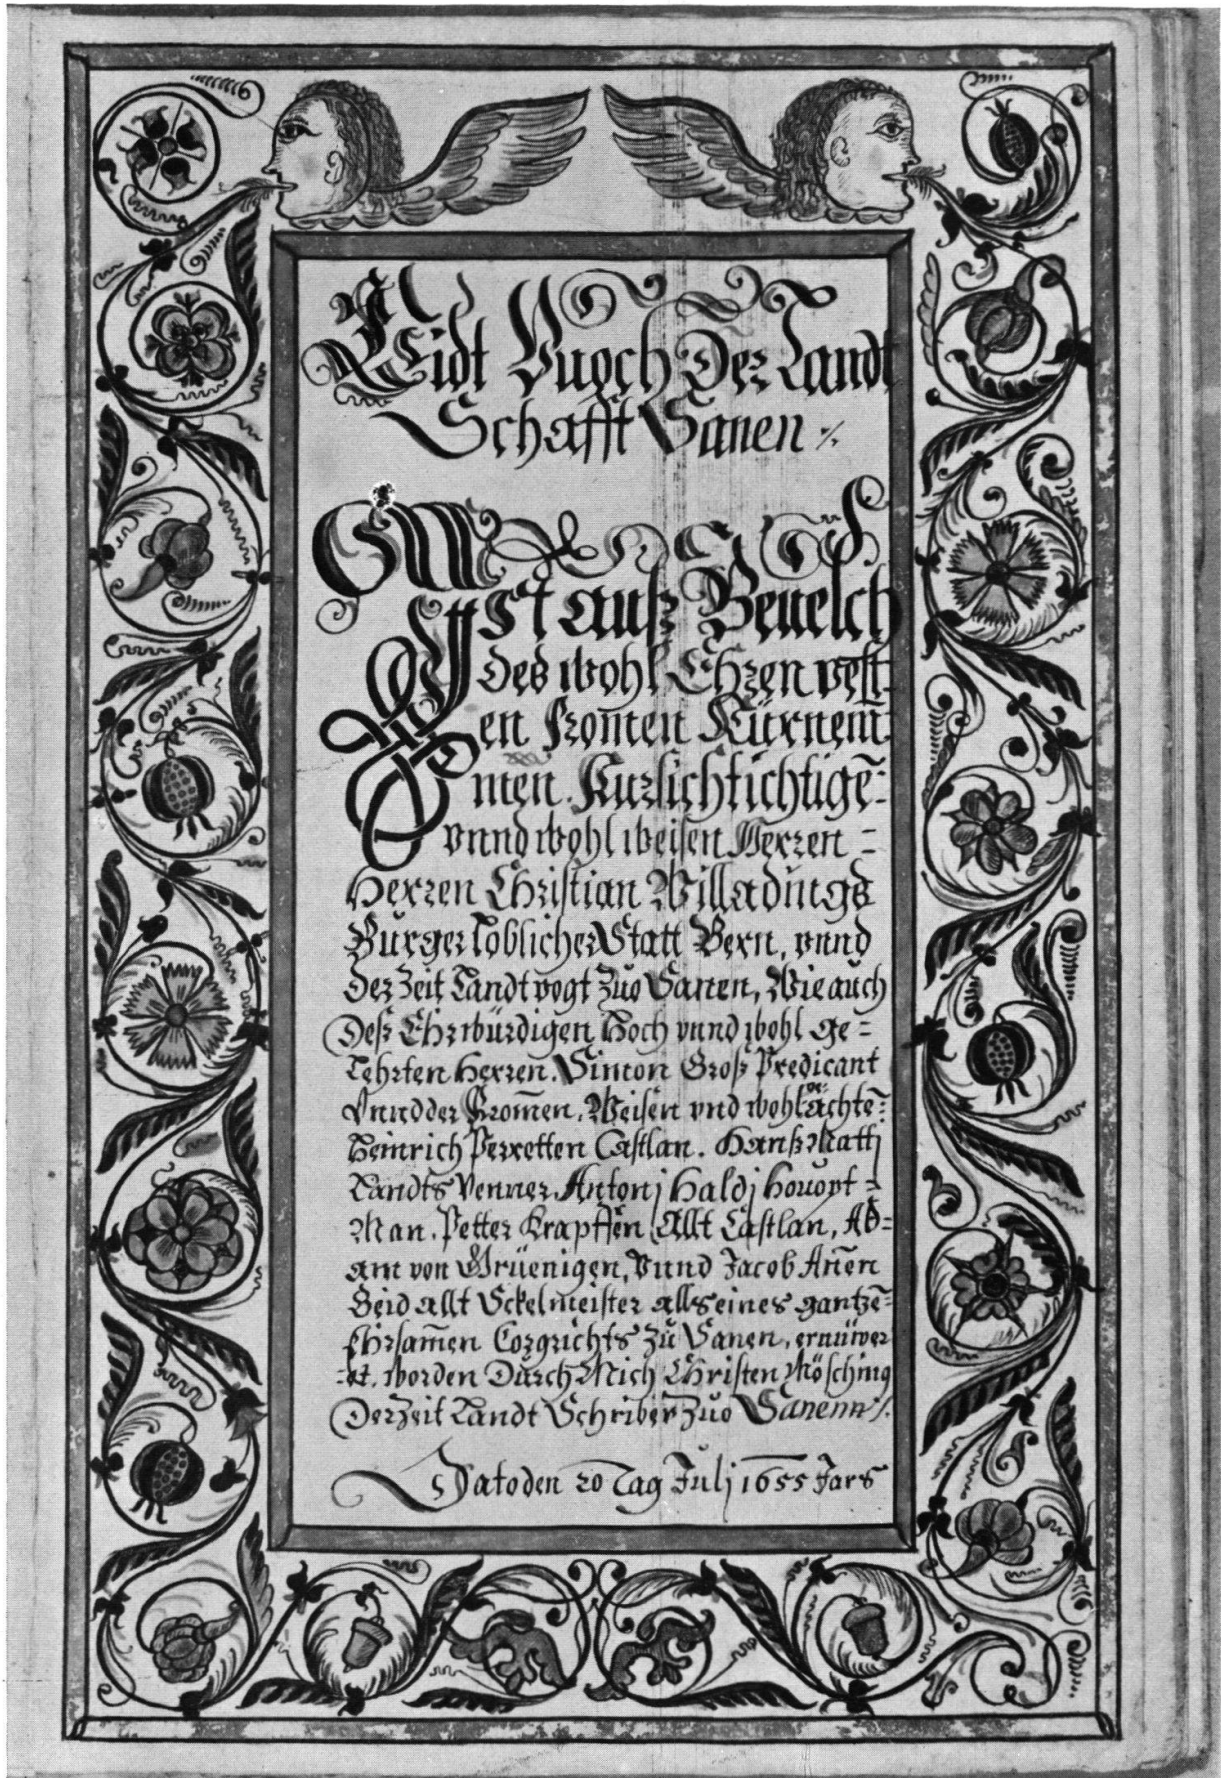 Eidt Buoch Der Landt
Schafft Sanen ⁒
Ist auß Beuelch
des wohl Ehren vest-
en Fromen Fürnem̄-
men. Fursichtichtigē-
vnnd wohl weisen Herren =
Herren Christian Willadings
Burger loblicher Statt Bern, vnnd
der Zeit Landtvogt Zuo Sanen, Wie auch
Deß Ehrwürdigen Hoch vnnd wohl ge=
Lehrten Herren. Simon Groß Predicant
Vnnd der From̄en, Weisen vnd wohlgeachtē=
Heinrich Perretten Castlan. Hanß Mattj
Landts Venner Antonj Haldj Houopt =
Man. Petter Krapffen Allt Castlan, Ad=
am von Grüenigen, Vnnd Jacob An̄en
Beid allt Seckelmeister alls eines gantzē=
Ehrsam̄en Corgrichts Zu Sanen, ernüwer
=et. worden Durch Mich Christen Mösching
Der Zeit Landt Schriber Zuo Sanenn ⁒.
Dato den 20 Tag Julj 1655 Jars